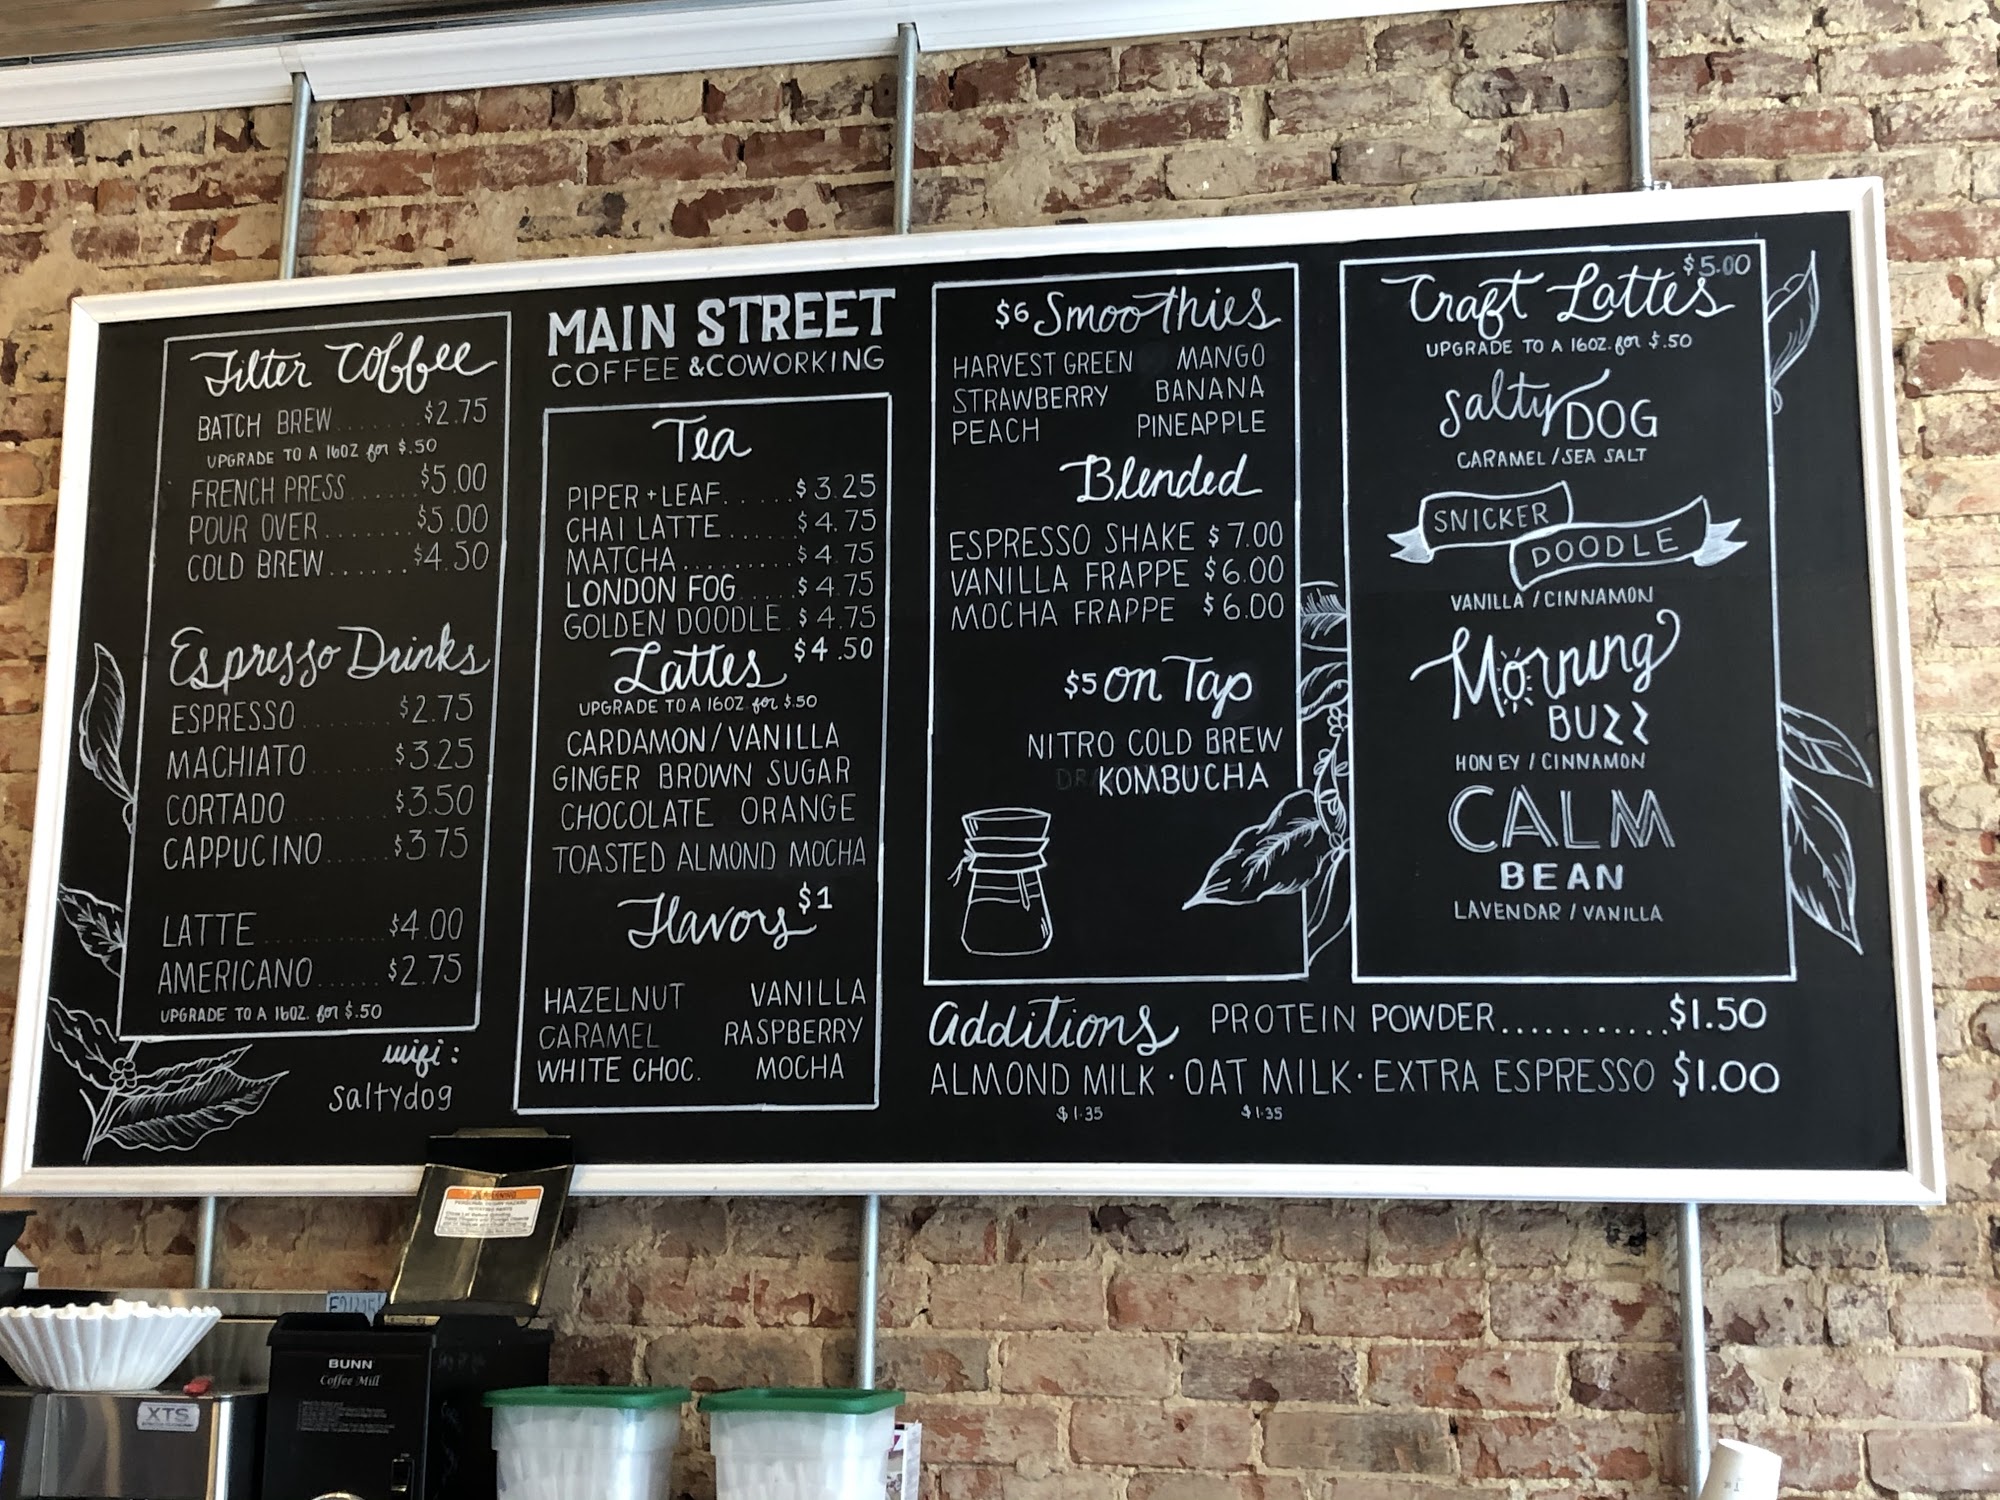 Filter Coffee
BATCH BREW........$2.75
UPGRADE TO A 16OZ for $.50
FRENCH PRESS......$5.00
POUR OVER........$5.00
COLD BREW.......$4.50
Espresso Drinks
ESPRESSO........$2.75
MACHIATO......$3.25
CORTADO........$3.50
CAPPUCINO......$3.75
LATTE...........$4.00
AMERICANO......$2.75
UPGRADE TO A 16OZ. for $.50
wifi:
saltydog
MAIN STREET
COFFEE & COWORKING
Tea
PIPER + LEAF......$3.25
CHAI LATTE......$4.75
MATCHA.........$4.75
LONDON FOG.....$4.75
GOLDEN DOODLE.$4.75
Lattes $4.50
UPGRADE TO A 16OZ for $.50
CARDAMON/VANILLA
GINGER BROWN SUGAR
CHOCOLATE ORANGE
TOASTED ALMOND MOCHA
Flavors $1
HAZELNUT VANILLA
CARAMEL RASPBERRY
WHITE CHOC. MOCHA
$6 Smoothies
HARVEST GREEN MANGO
STRAWBERRY BANANA
PEACH PINEAPPLE
Blended
ESPRESSO SHAKE $7.00
VANILLA FRAPPE $6.00
MOCHA FRAPPE $6.00
$5 on Tap
NITRO COLD BREW
KOMBUCHA
Craft Lattes $5.00
UPGRADE TO A 16OZ. for $.50
Salty DOG
CARAMEL / SEA SALT
SNICKER
DOODLE
VANILLA / CINNAMON
Morning
BUZZ
HONEY / CINNAMON
CALM
BEAN
LAVENDAR / VANILLA
Additions PROTEIN POWDER...........$1.50
ALMOND MILK · OAT MILK · EXTRA ESPRESSO $1.00
$1.35 $1.35
WARNING
BUNN
Coffee Mill
XTS